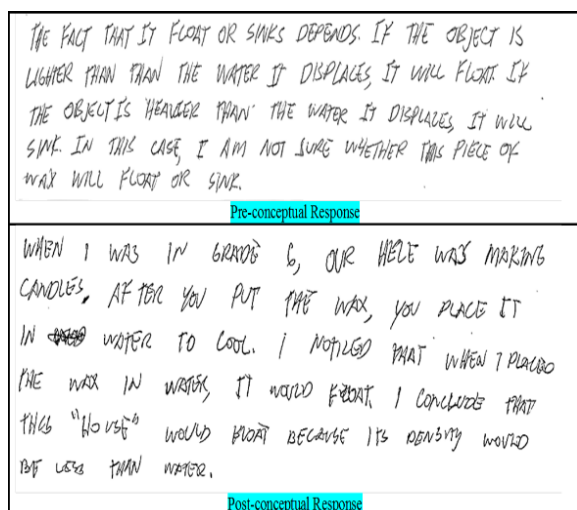 THE FACT THAT IT FLOAT OR SINKS DEPENDS. IF THE OBJECT IS
LIGHTER THAN THAN THE WATER IT DISPLACES, IT WILL FLOAT. IF
THE OBJECT IS 'HEAVIER THAN' THE WATER IT DISPLACES, IT WILL
SINK. IN THIS CASE, I AM NOT SURE WHETHER THIS PIECE OF
WAX WILL FLOAT OR SINK.
Pre-conceptual Response
WHEN I WAS IN GRADE 6, OUR HELE WAS MAKING
CANDLES. AFTER YOU PUT THE WAX, YOU PLACE IT
IN WATER TO COOL. I NOTICED THAT WHEN I PLACED
THE WAX IN WATER, IT WOULD FLOAT. I CONCLUDE THAT
THIS "HOUSE" WOULD FLOAT BECAUSE ITS DENSITY WOULD
BE LESS THAN WATER.
Post-conceptual Response